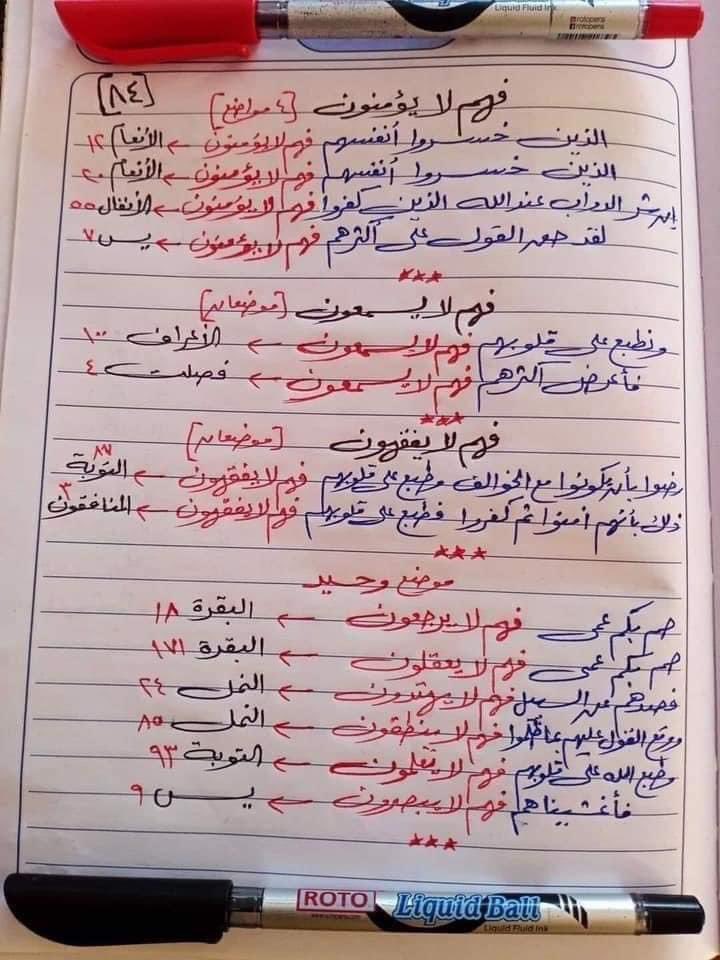 Liquid Fluid Ink
rotopens
rotopens
[٨٤]
فهم لا يؤمنون [٤ مواضع]
الذين خسروا أنفسهم فهم لا يؤمنون ← الأنعام ١٢
الذين خسروا أنفسهم فهم لا يؤمنون ← الأنعام ٢٠
إن شر الدواب عند الله الذين كفروا فهم لا يؤمنون ← الأنفال ٥٥
لقد حق القول على أكثرهم فهم لا يؤمنون ← يس ٧
***
فهم لا يسمعون [موضعان]
ونطبع على قلوبهم فهم لا يسمعون ← الأعراف ١٠٠
فأعرض أكثرهم فهم لا يسمعون ← فصلت ٤
***
فهم لا يفقهون [موضعان]
رضوا بأن يكونوا مع الخوالف وطبع على قلوبهم فهم لا يفقهون ← التوبة ٨٧
ذلك بأنهم آمنوا ثم كفروا فطبع على قلوبهم فهم لا يفقهون ← المنافقون ٣
***
موضع وحيد
صم بكم عمى فهم لا يرجعون ← البقرة ١٨
صم بكم عمى فهم لا يعقلون ← البقرة ١٧١
فصدهم عن السبيل فهم لا يهتدون ← النمل ٢٤
ووقع القول عليهم بما ظلموا فهم لا ينطقون ← النمل ٨٥
وطبع الله على قلوبهم فهم لا يعلمون ← التوبة ٩٣
فأغشيناهم فهم لا يبصرون ← يس ٩
***
ROTO Liquid Ball
Liquid Fluid Ink